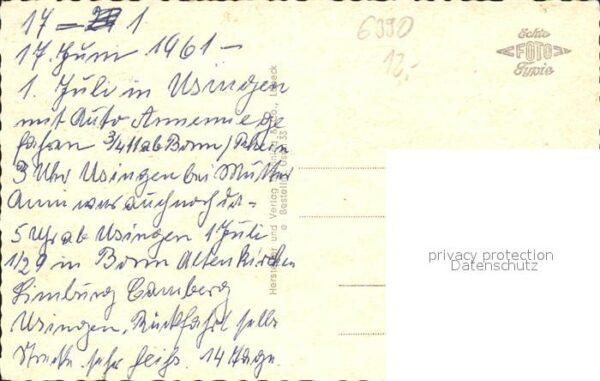 17 – 1.
17. Juni 1961 –
1. Juli in Usingen
mit Auto Annemie ge
fahren 3/4 11 ab Bonn/Rhein
3 Uhr Usingen bei Mutter
Anni war auch noch da –
5 Uhr ab Usingen 1 Juli
1/2 9 in Bonn Altenkirchen
Limburg Camberg
Usingen, Rückfahrt selbe
Strecke. sehr heiß. 14 Tage.
6390
12,-
Echte
FOTO
Typie
Hersteller und Verlag & Co., Lübeck
Bestell 33
privacy protection
Datenschutz